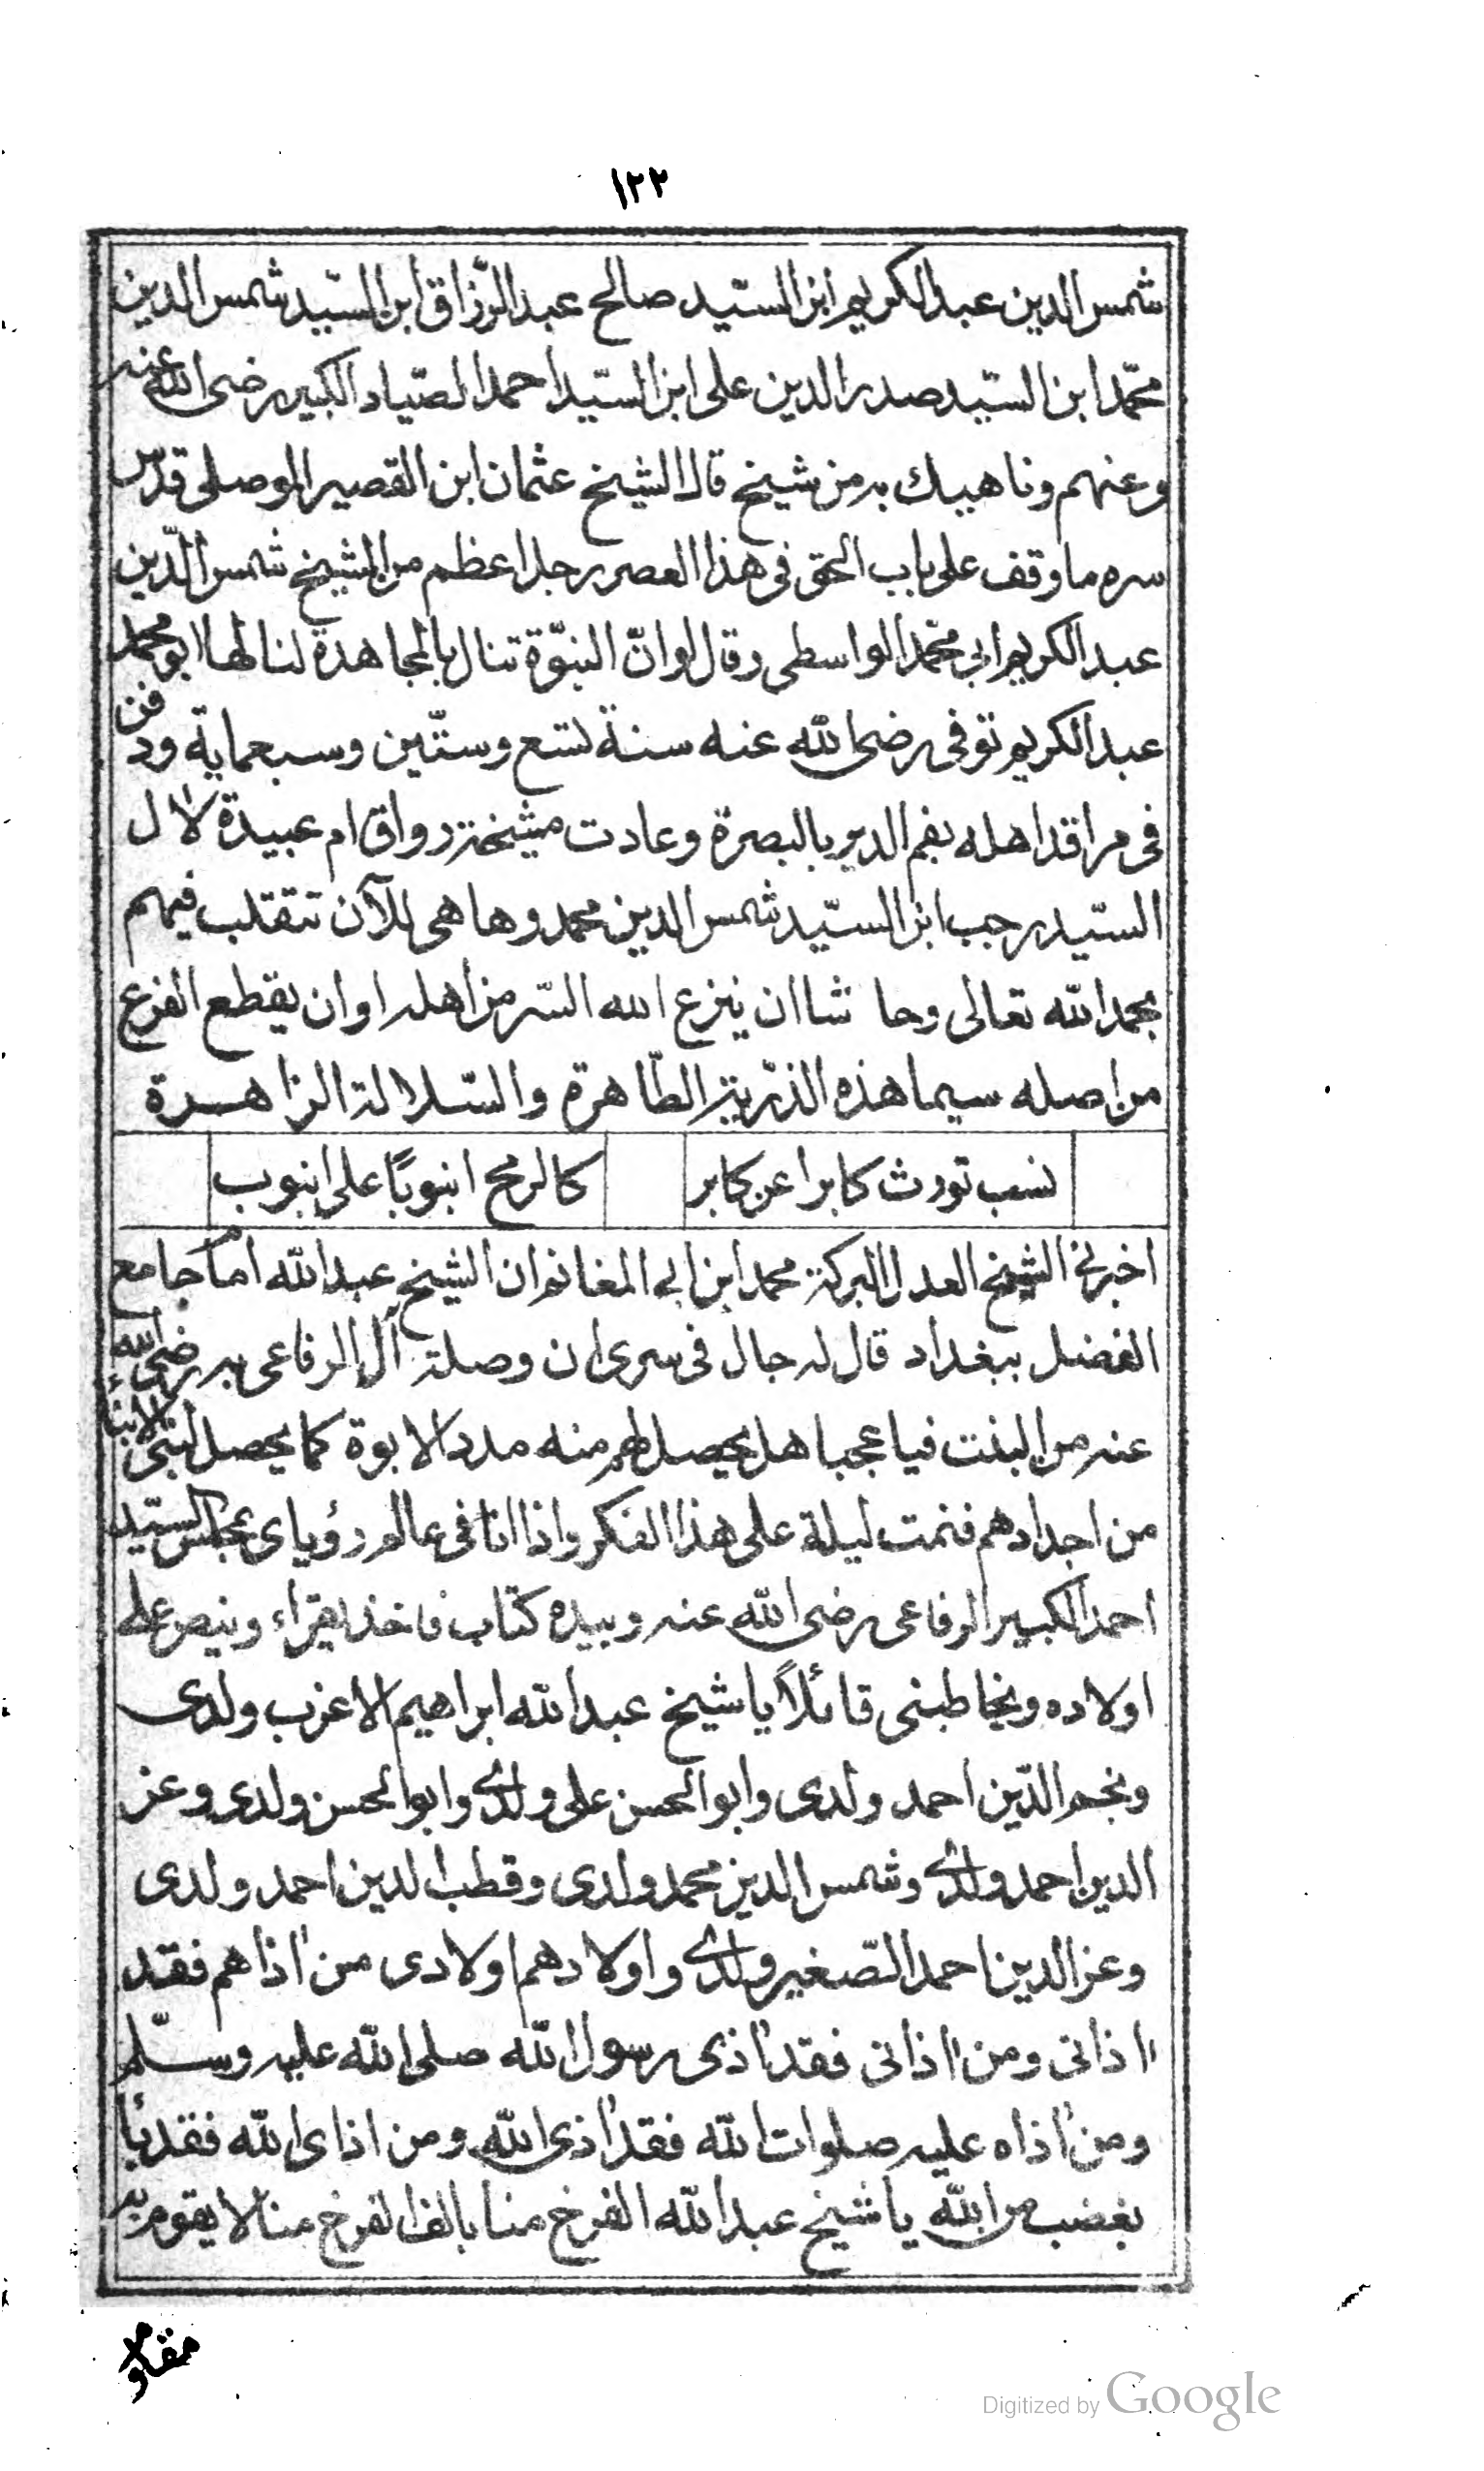 ١٢٢
شمس الدين عبد الكريم ابن السّيد صالح عبد الرّزاق ابن السّيد شمس الدين
محمّد ابن السّيد صدر الدين على ابن السّيد احمد الصّياد الكبير رضى الله عنه
وعنهم وناهيك به من شيخ قال الشيخ عثمان ابن القصير الموصلى قدّس
سره ما وقف على باب الحق فى هذا العصر رجل اعظم من الشيخ شمس الدّين
عبد الكريم ابى محمّد الواسطى وقال لو انّ النبّوة تنال بالمجاهدة لنالها ابو محمد
عبد الكريم توفى رضى الله عنه سنة تسع وستّين وسبعماية ودفن
فى مراقد اهله بفم الدير بالبصرة وعادت مشيخة رواق ام عبيدة لآل
السّيد رجب ابن السّيد شمس الدين محمد وها هى للآن تتقلب فيهم
بحمد الله تعالى وحا شا ان ينزع الله السّر من اهله او ان يقطع الفرع
من اصله سيما هذه الذرّية الطّاهرة والسّلالة الزاهرة
نسب تورث كابرا عن كابر كالرمح انبوبًا على انبوب
اخبرنى الشيخ العدل البركة محمد ابن ابى المغانم ان الشيخ عبد الله امام جامع
الفضل ببغداد قال له جال فى سرى ان وصلة آل الرفاعى به رضى الله
عنه من البنت فيا عجبا هل يحصل لهم منه مدد الابوة كما يحصل لبنى الابناء
من اجدادهم فنمت ليلة على هذا الفكر واذا انا فى عالم رؤياى بمجلس السّيد
احمد الكبير الرفاعى رضى الله عنه وبيده كتاب فاخذ يقراء وينص على
اولاده ويخاطبنى قائلاً يا شيخ عبد الله ابراهيم الاعزب ولدى
ونجم الدّين احمد ولدى وابو الحسن على ولدى وابو الحسن ولدى وعز
الدين احمد ولدى وشمس الدين محمد ولدى وقطب الدين احمد ولدى
وعز الدين احمد الصّغير ولدى واولادهم اولادى من اذاهم فقد
اذانى ومن اذانى فقد اذى رسول الله صلى الله عليه وسلّم
ومن اذاه عليه صلوات الله فقد اذى الله ومن اذاى الله فقد باء
بغضب من الله يا شيخ عبد الله الفرخ منا بالف الفرخ منا لا يقوم به